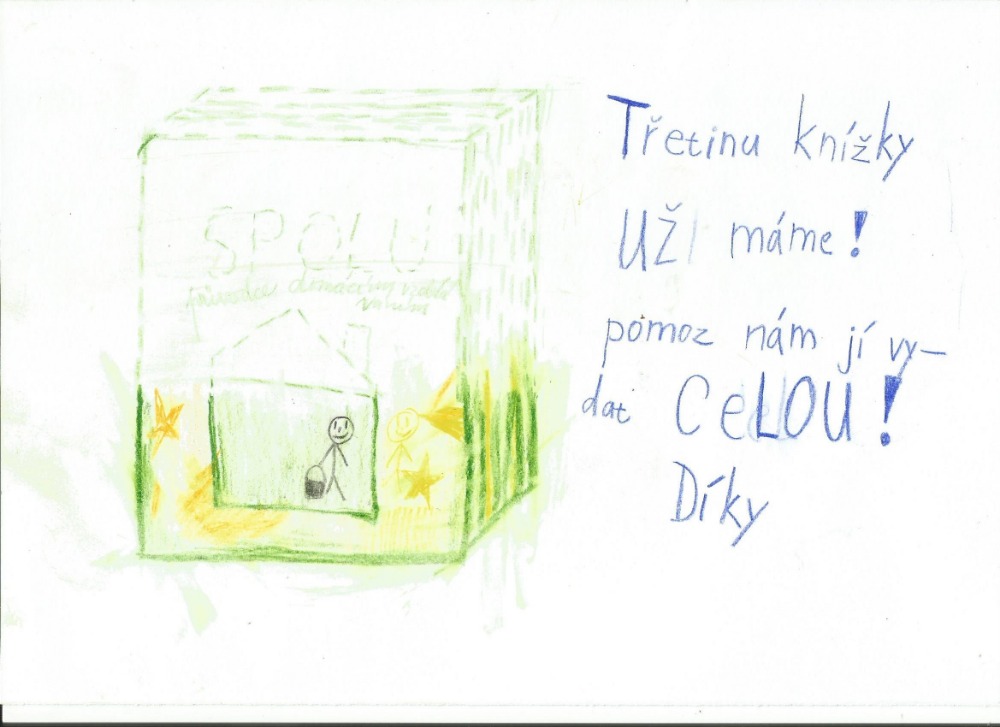 SPOLU
průvodce domácího vzdělávání
Třetinu knížky
UŽ máme!
pomoz nám jí vy–
dat CeLOU!
Díky